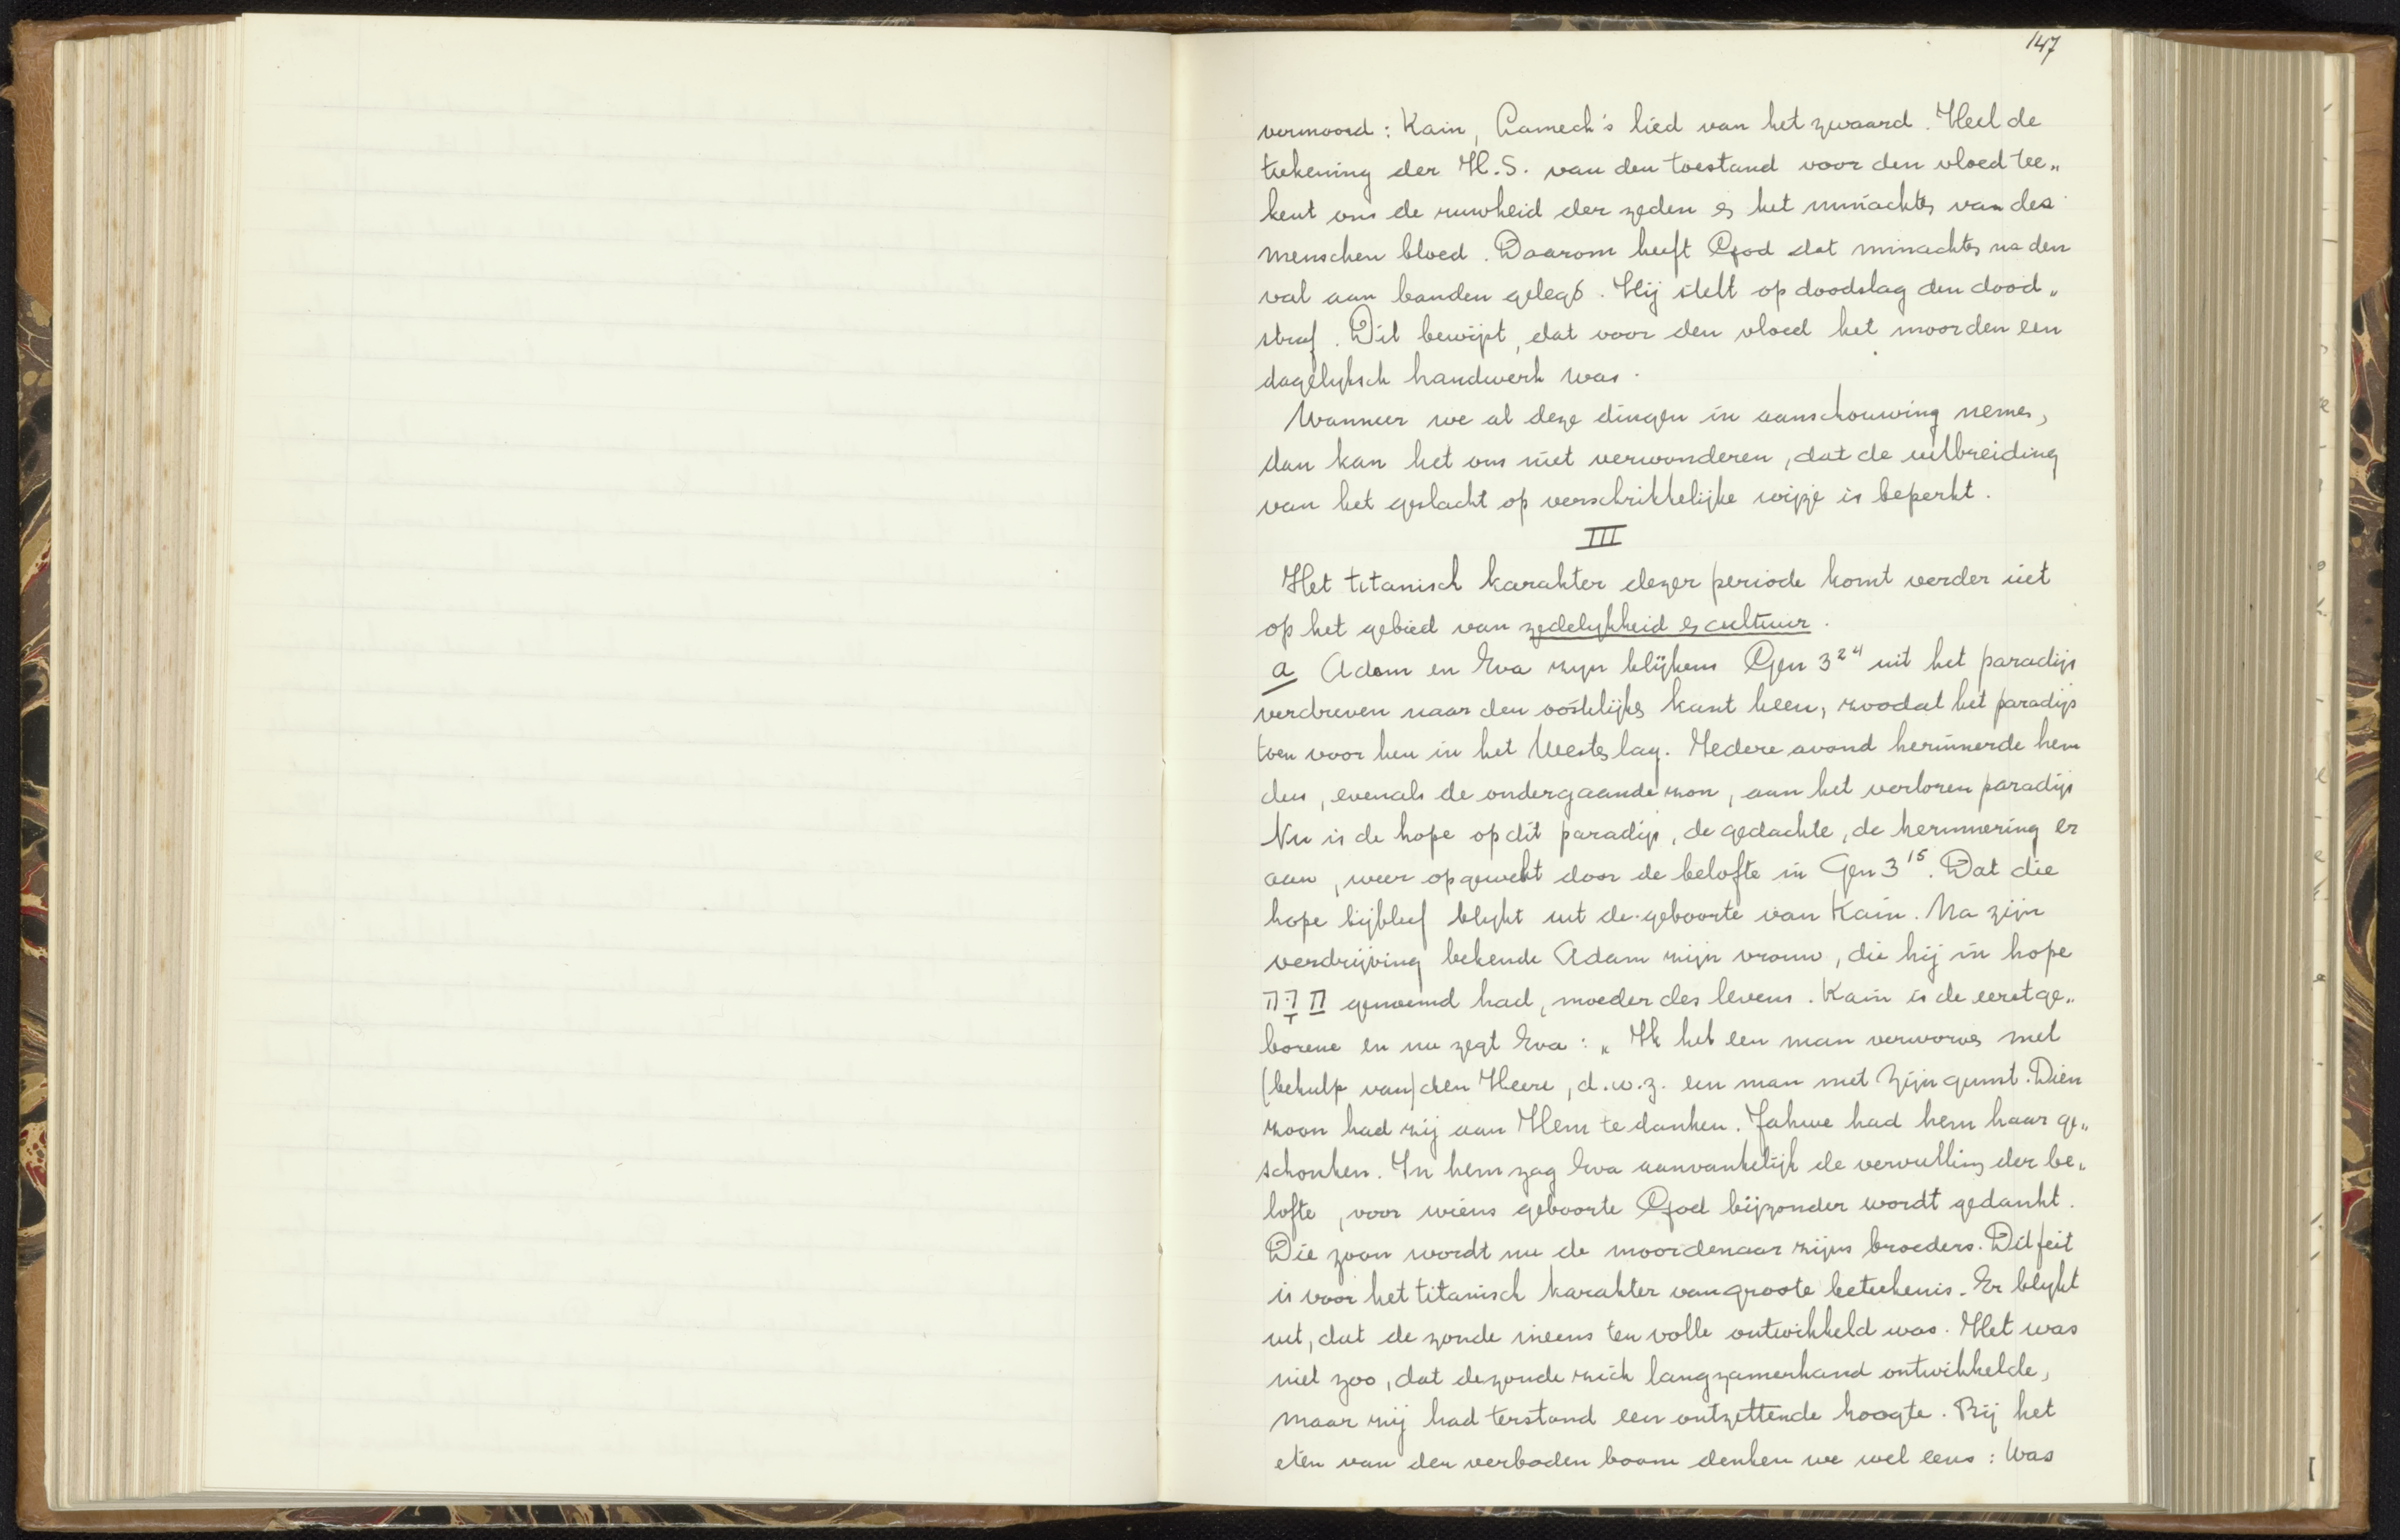 147
vermoord: Kain, Lamech's lied van het zwaard. Heel de
teekening der H.S. van den toestand voor den vloed tee„
kent ons de ruwheid der zeden & het minachten van des
menschen bloed. Daarom heeft God dat minachten na den
val aan banden gelegd. Hij stelt op doodslag den dood„
straf. Dit bewijst, dat voor den vloed het moorden een
dagelyksch handwerk was.
Wanneer we al deze dingen in aanschouwing nemen,
dan kan het ons niet verwonderen, dat de uitbreiding
van het geslacht op verschrikkelijke wijze is beperkt.
III
Het titanisch karakter dezer periode komt verder uit
op het gebied van zedelykheid & cultuur.
a Adam en Eva zyn blijkens Gen 3²⁴ uit het paradijs
verdreven naar den oostelijken kant heen, zoodat het paradijs
toen voor hen in het Westen lag. Iedere avond herinnerde hen
dus, evenals de ondergaande zon, aan het verloren paradijs
Nu is de hope op dit paradijs, de gedachte, de herinnering er
aan, weer opgewekt door de belofte in Gen 3¹⁵. Dat die
hope bijbleef blykt uit de geboorte van Kain. Na zijn
verdrijving bekende Adam zijn vrouw, die hij in hope
חַוָּה genoemd had, moeder des levens. Kain is de eerstge„
borene en nu zegt Eva: „Ik heb een man verworven met
(behulp van) den Heere, d.w.z. een man met Zijn gunst. Dien
zoon had zij aan Hem te danken. Jahwe had hem haar ge„
schonken. In hem zag Eva aanvankelijk de vervulling der be„
lofte, voor wiens geboorte God bijzonder wordt gedankt.
Die zoon wordt nu de moordenaar zijns broeders. Dit feit
is voor het titanisch karakter van groote beteekenis. Er blykt
uit, dat de zonde ineens ten volle ontwikkeld was. Het was
niet zoo, dat de zonde zich langzamerhand ontwikkelde,
maar zij had terstond een ontzettende hoogte. Bij het
eten van den verboden boom denken we wel eens: Was